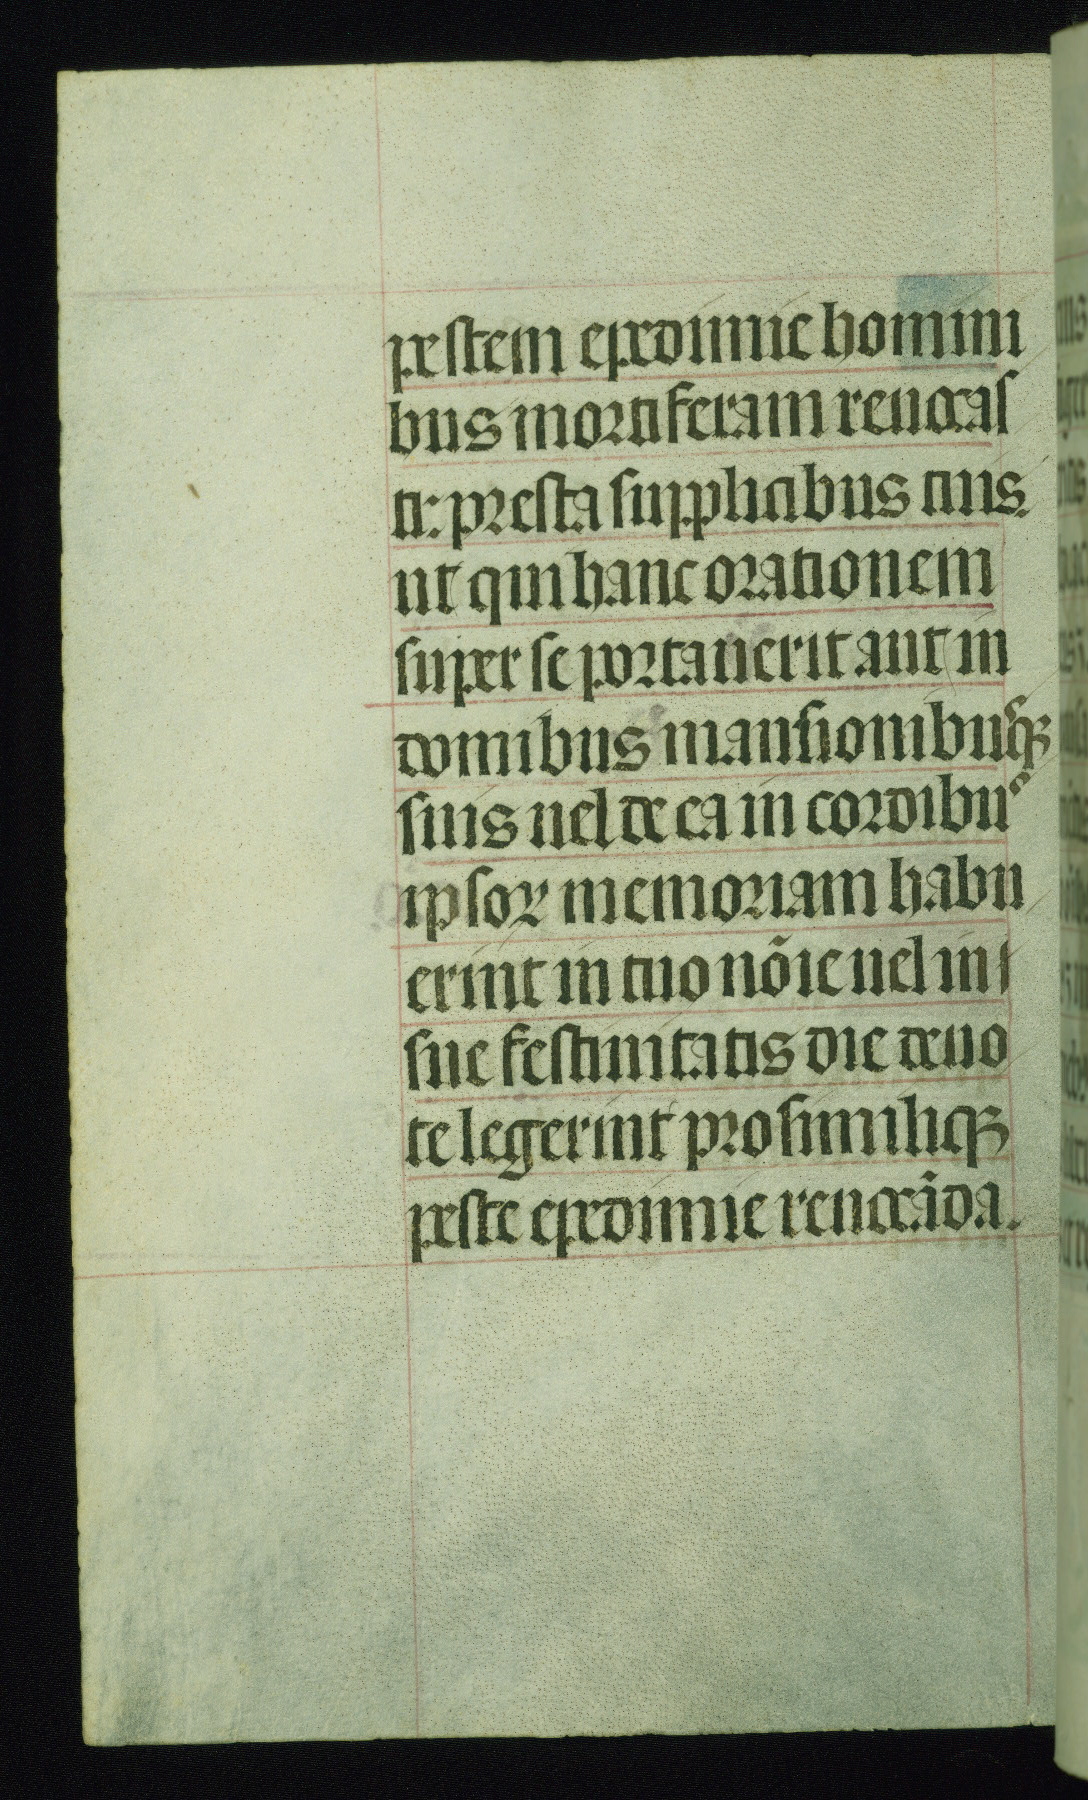 pestem epedimie homini
bus mortiferam reuocas
ti: presta supplicibus tuis.
ut qui hanc orationem
super se portauerit aut in
domibus mansionibusqꝫ
suis uel de ea in cordibus
ipsoꝝ memoriam habu
erint in tuo nõie uel in
sue festiuitatis die deuo
te legerint pro similiqꝫ
peste epedimie reuocãda.